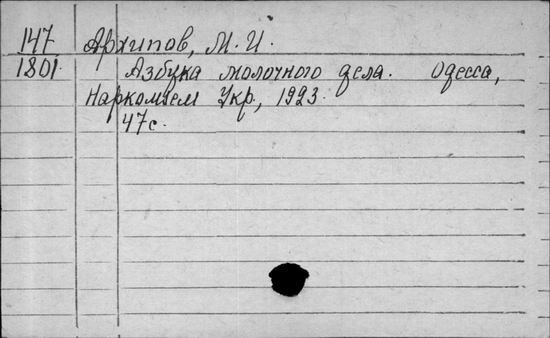 147 Архипов, М. И.
1801 Азбука молочного дела. Одесса,
Наркомзем Укр., 1923.
47 с.